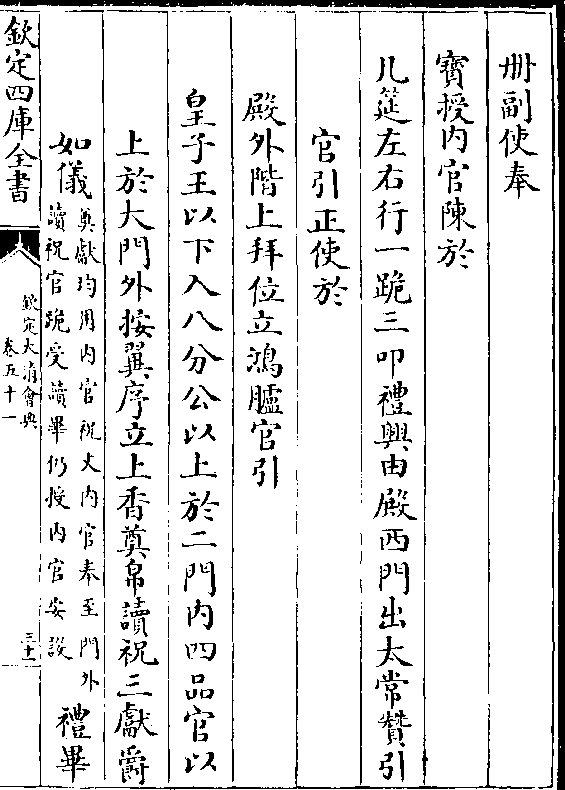 册副使奉
寶授内官陳於
几筵左右行一跪三叩禮興由殿西門出太常贊引
官引正使於
殿外階上拜位立鴻臚官引
皇子王以下入八分公以上於二門内四品官以
上於大門外按翼序立上香奠帛讀祝三獻爵
如儀奠獻均用内官祝文内官奉至門外
讀祝官跪受讀畢仍授内官安設禮畢
欽定四庫全書
欽定大清會典
卷五十一
三十一